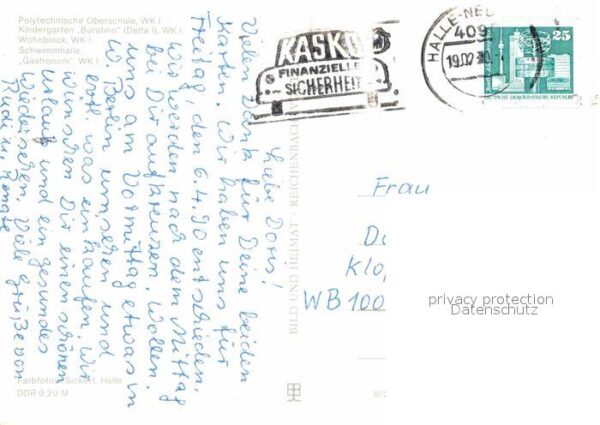 Polytechnische Oberschule, WK I
Kindergarten „Buratino" (Delfa I), WK I
Wohnblock, WK I
Schwimmhalle,
„Gastronom", WK I
KASKO
FINANZIELLE
SICHERHEIT
HALLE-NEU
409
19.02.90
25
DEUTSCHE DEMOKRATISCHE REPUBLIK
Liebe Doris!
Vielen Dank für Deine beiden
Karten. Wir haben uns für
Freitag, den 6.4.90 entschieden.
Wir werden nach dem Mittag
bei Dir aufkreuzen. Wollen
uns am Vormittag etwas in
W Berlin umsehen und
evtl. was einkaufen. Wir
wünschen Dir einen schönen
Urlaub und ein gesundes
Wiedersehen. Viele Grüße von
Rudi u. Renate
BILD UND HEIMAT · REICHENBACH
Frau
Do
Klo
WB 100
privacy protection
Datenschutz
Farbfoto: Sickert, Halle
DDR 0,20 M